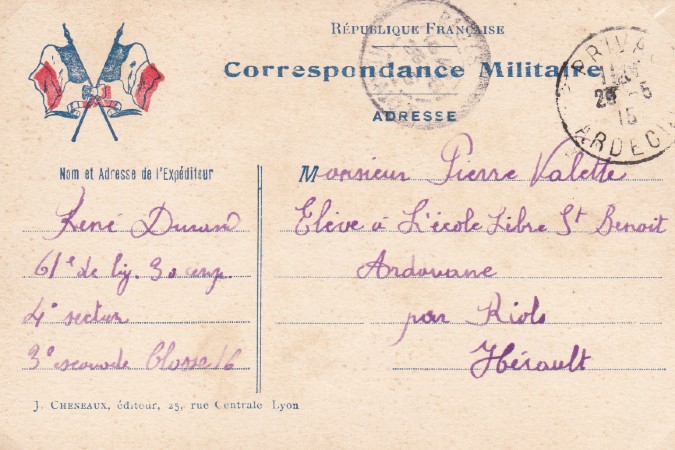 RÉPUBLIQUE FRANÇAISE
Correspondance Militaire
ADRESSE
PRIVAS
28 -5
15
ARDECHE
Nom et Adresse de l'Expéditeur
René Durand
61e de lig. 30 comp.
4e section
3e escouade Classe 16
Monsieur Pierre Valette
Elève à L'école Libre St Benoit
Ardouane
par Riols
Hérault
J. CHENEAUX, éditeur, 25, rue Centrale Lyon